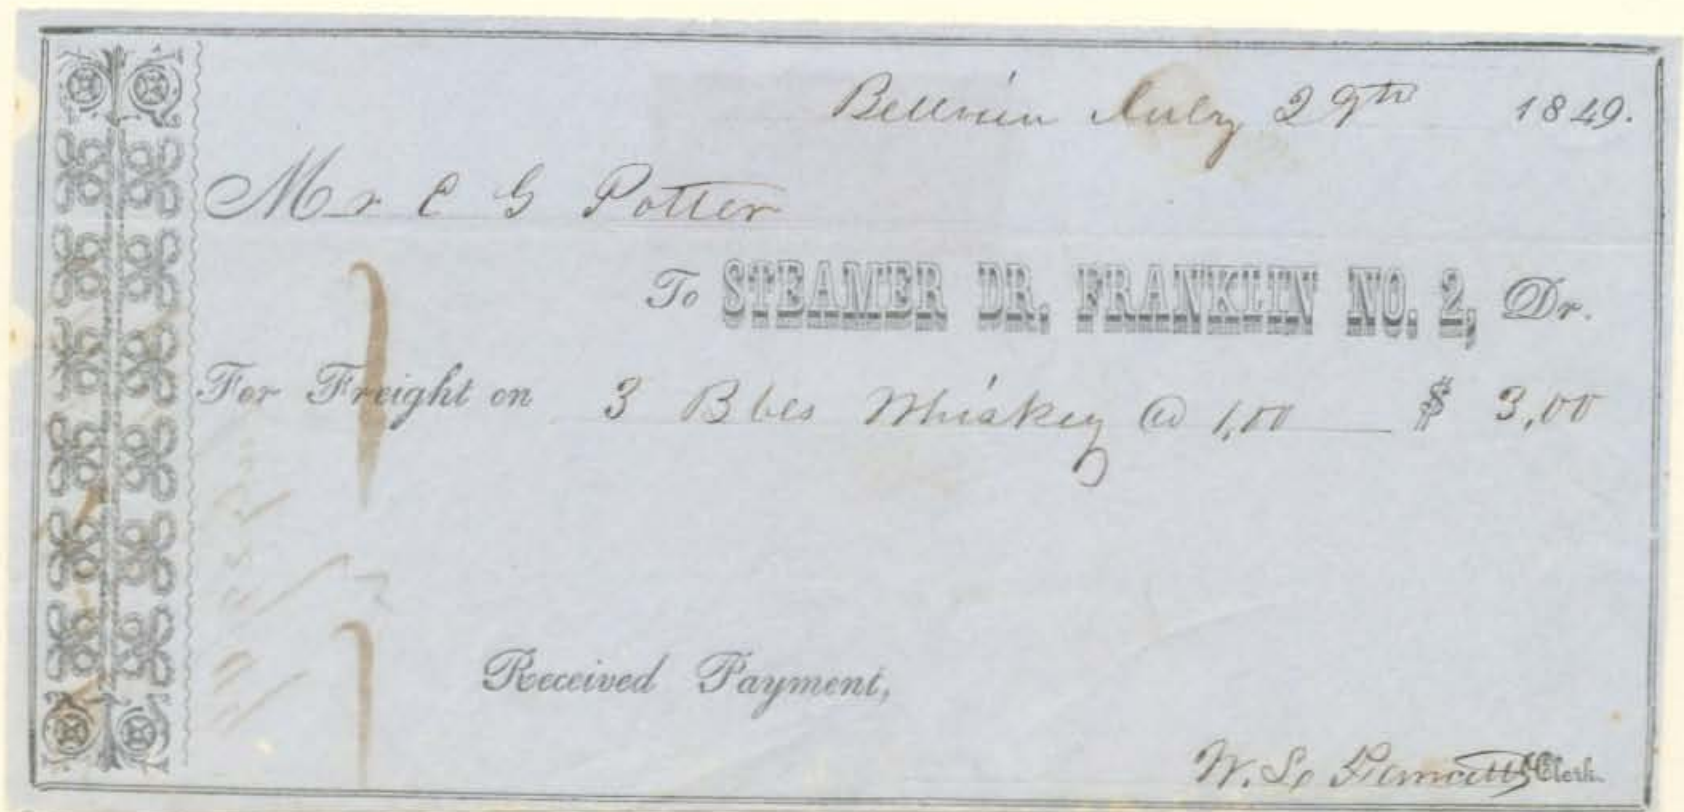 Bellview July 29th 1849.
Mr C G Potter
To STEAMER DR. FRANKLIN NO. 2, Dr.
For Freight on 3 Bbls Whiskey @ 1,00 $ 3,00
Received Payment,
W. S. Clerk.